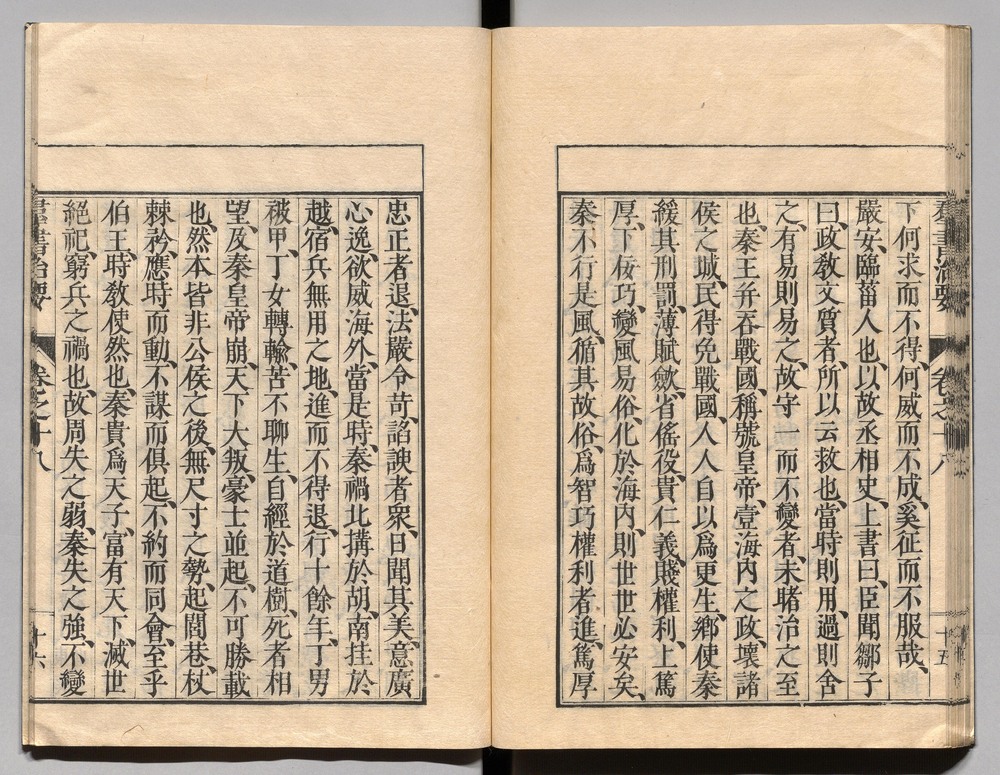 羣書治要 卷之十八 十五
下何求而不得何威而不成奚征而不服哉、
嚴安、臨菑人也、以故丞相史、上書曰、臣聞鄒子
曰、政敎文質者、所以云救也、當時則用、過則舍
之、有易則易之、故守一而不變者、未睹治之至
也、秦王幷吞戰國、稱號皇帝、壹海內之政、壞諸
侯之城、民得免戰國、人人自以爲更生、鄕使秦
緩其刑罰、薄賦斂、省傜役、貴仁義、賤權利、上篤
厚、下佞巧、變風易俗、化於海內、則世世必安矣、
秦不行是風、循其故俗、爲智巧權利者進、篤厚
忠正者退、法嚴令苛、諂諛者衆、日聞其美、意廣
心逸、欲威海外、當是時、秦禍北搆於胡、南挂於
越、宿兵無用之地、進而不得退、行十餘年、丁男
被甲、丁女轉輸、苦不聊生、自經於道樹、死者相
望、及秦皇帝崩、天下大叛、豪士並起、不可勝載
也、然本皆非公侯之後、無尺寸之勢、起閭巷、杖
棘矜、應時而動、不謀而俱起、不約而同會、至乎
伯王、時敎使然也、秦貴爲天子、富有天下、滅世
絕祀、窮兵之禍也、故周失之弱、秦失之強、不變
羣書治要 卷之十八 十六